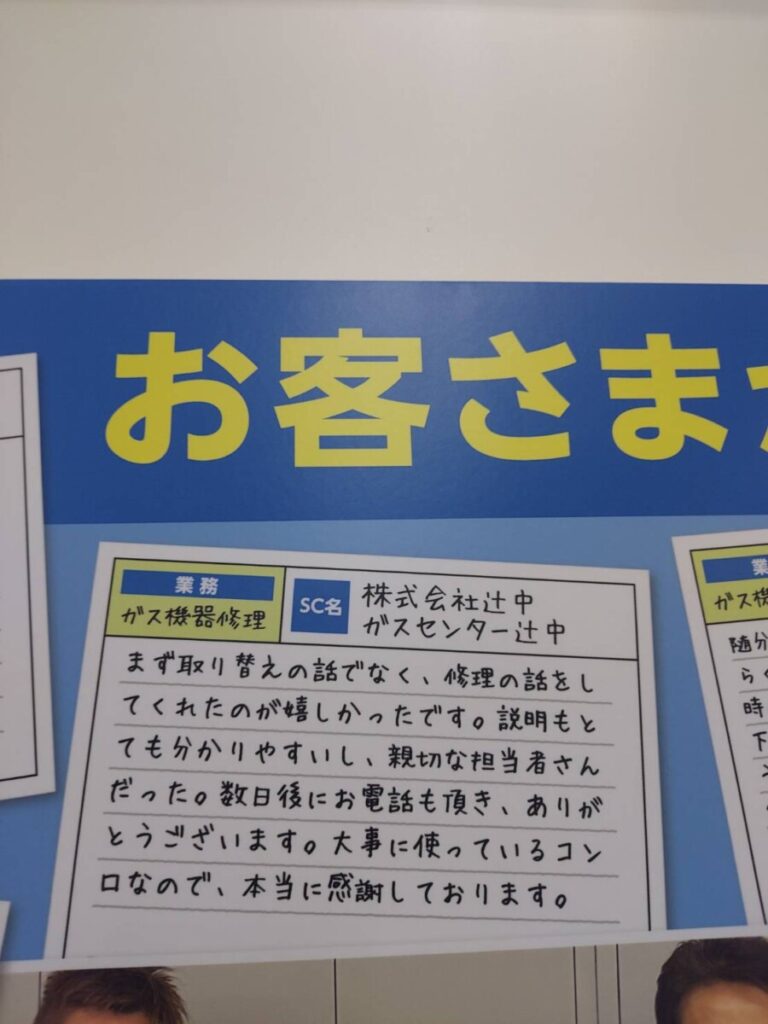 お客さま
業務
ガス機器修理
SC名
株式会社辻中
ガスセンター辻中
まず取り替えの話でなく、修理の話をし
てくれたのが嬉しかったです。説明もと
ても分かりやすいし、親切な担当者さん
だった。数日後にお電話も頂き、ありが
とうございます。大事に使っているコン
ロなので、本当に感謝しております。
業
ガス機
随分
らく
時
下